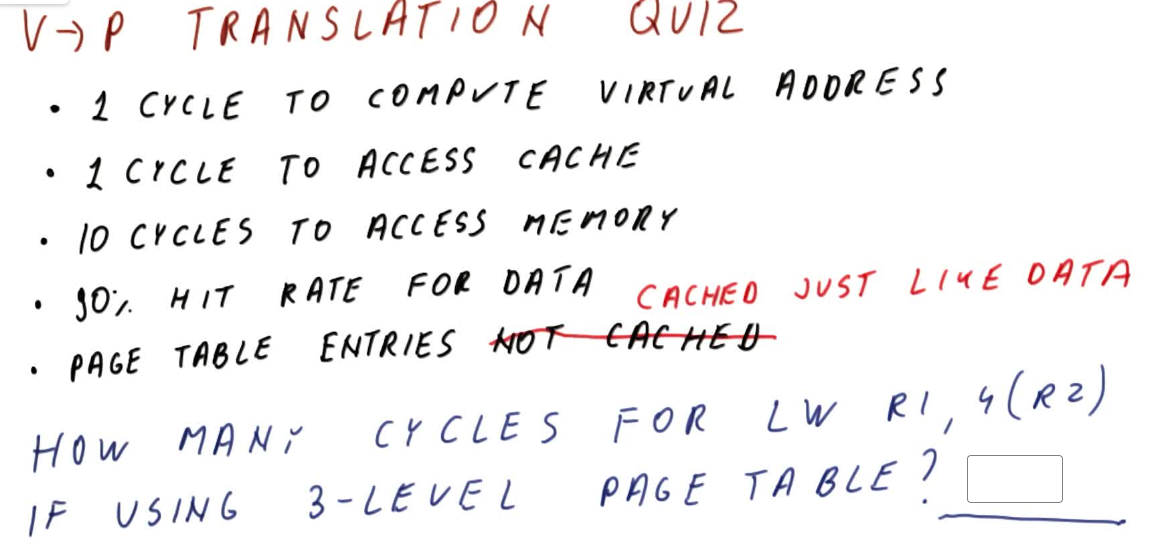 V→P TRANSLATION QUIZ
• 1 CYCLE TO COMPUTE VIRTUAL ADDRESS
• 1 CYCLE TO ACCESS CACHE
• 10 CYCLES TO ACCESS MEMORY
• 90% HIT RATE FOR DATA CACHED JUST LIKE DATA
• PAGE TABLE ENTRIES NOT CACHED
HOW MANY CYCLES FOR LW R1, 4(R2)
IF USING 3-LEVEL PAGE TABLE?